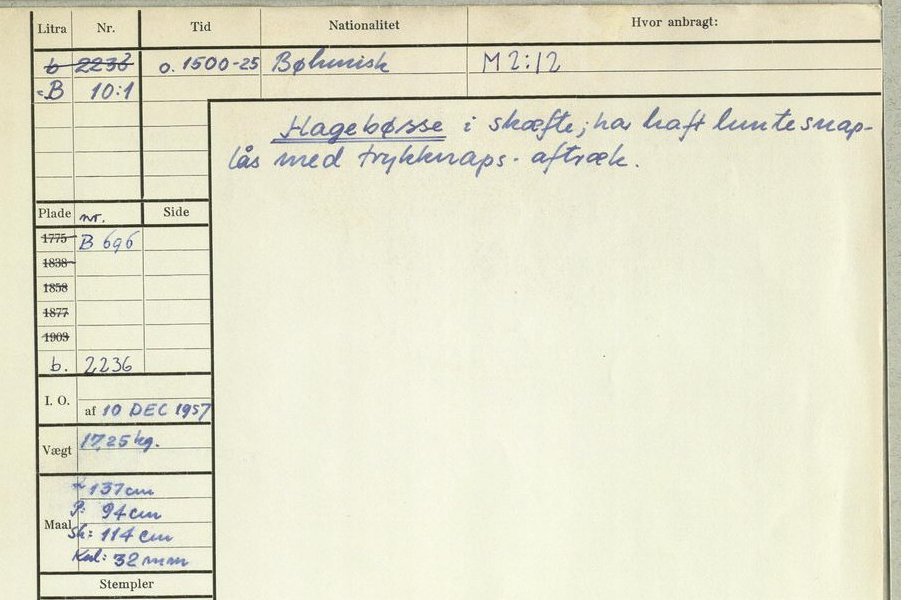 Litra Nr. Tid Nationalitet Hvor anbragt:
b 2236² o. 1500-25 Bøhmisk M2:12
B 10:1
Hagebøsse i skæfte; har haft luntesnap-
lås med trykknaps-aftræk.
Plade nr. Side
1775 B 696
1838
1858
1877
1903
b. 2236
I. O. af 10 DEC 1957
Vægt 17,25 kg.
L 137cm
P: 94cm
Maal Sk: 114 cm
Kal: 32 mm
Stempler